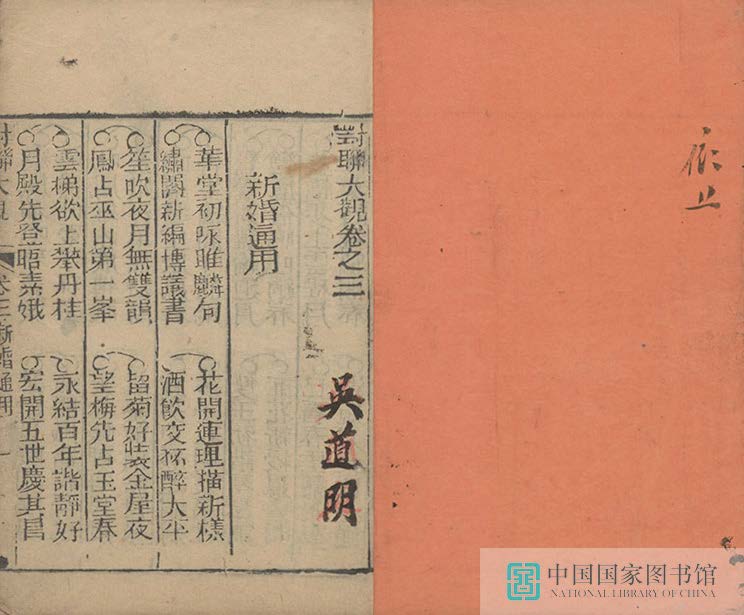 對聯大觀卷之三
吳道明
新婚通用
華堂初咏雎麟句
花開連理描新樣
繡閣新編博議書
酒飲交杯醉太平
笙吹夜月無雙韻
留菊好裝金屋夜
鳳占巫山第一峯
望梅先占玉堂春
雲梯欲上攀丹桂
永結百年諧靜好
月殿先登晤素娥
宏開五世慶其昌
對聯大觀
卷三新婚通用
一
中国国家图书馆
NATIONAL LIBRARY OF CHINA